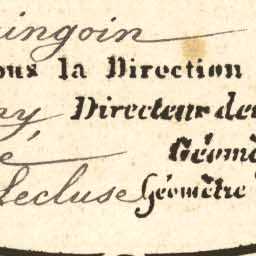 uingoin
ous la Direction
ny Directeur de
é Géomè
Lecluse Géomètre